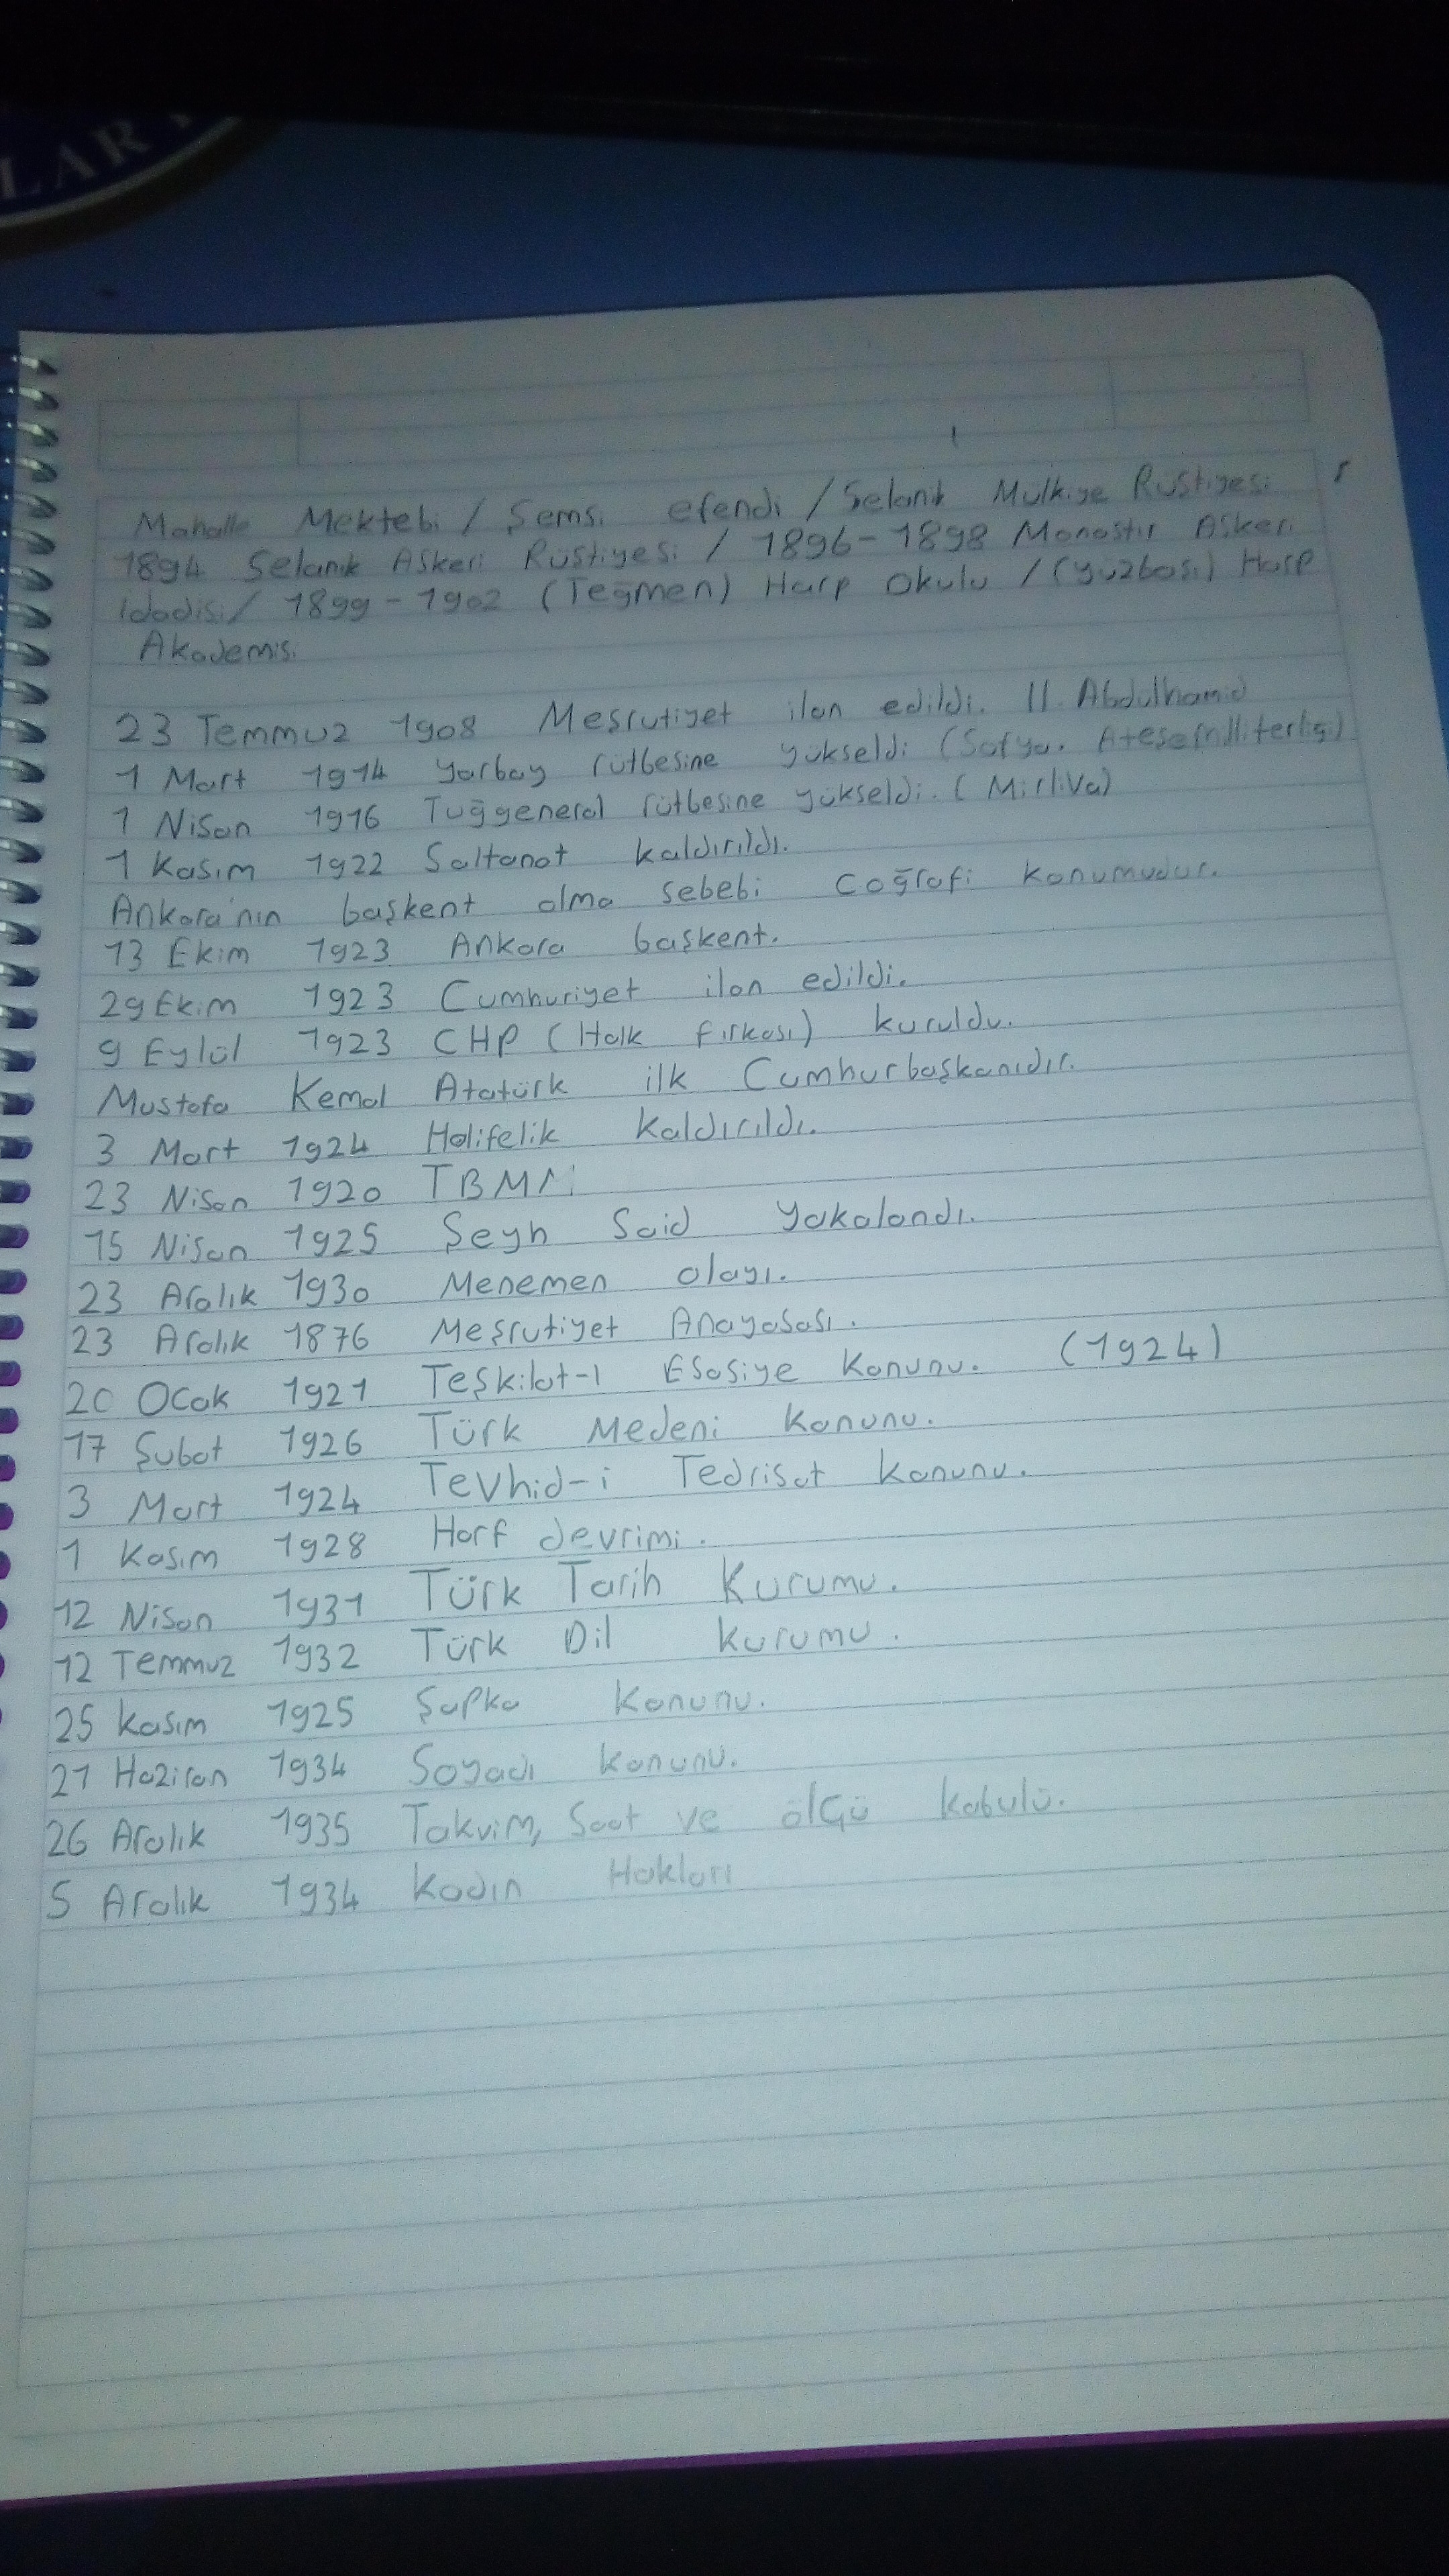 LAR
Mahalle Mektebi / Şemsi efendi / Selanik Mülkiye Rüştiyesi
1894 Selanik Askeri Rüştiyesi / 1896-1898 Monastır Askeri
İdadisi / 1899-1902 (Teğmen) Harp Okulu / (yüzbaşı) Harp
Akademisi
23 Temmuz 1908 Meşrutiyet ilan edildi. II. Abdulhamid
1 Mart 1914 Yarbay rütbesine yükseldi (Sofya. Ateşemiliterliği)
1 Nisan 1916 Tuğgeneral rütbesine yükseldi. (Mirliva)
1 Kasım 1922 Saltanat kaldırıldı.
Ankara'nın başkent olma sebebi coğrafi konumudur.
13 Ekim 1923 Ankara başkent.
29 Ekim 1923 Cumhuriyet ilan edildi.
9 Eylül 1923 CHP (Halk fırkası) kuruldu.
Mustafa Kemal Atatürk ilk Cumhurbaşkanıdır.
3 Mart 1924 Halifelik kaldırıldı.
23 Nisan 1920 TBMM
15 Nisan 1925 Şeyh Said Yakalandı.
23 Aralık 1930 Menemen olayı.
23 Aralık 1876 Meşrutiyet Anayasası.
20 Ocak 1921 Teşkilat-ı Esasiye Kanunu. (1924)
17 Şubat 1926 Türk Medeni Kanunu.
3 Mart 1924 Tevhid-i Tedrisat Kanunu.
1 Kasım 1928 Harf devrimi.
12 Nisan 1931 Türk Tarih Kurumu.
12 Temmuz 1932 Türk Dil Kurumu.
25 Kasım 1925 Şapka Kanunu.
21 Haziran 1934 Soyadı Kanunu.
26 Aralık 1935 Takvim, Saat ve ölçü kabulü.
5 Aralık 1934 Kadın Hakları